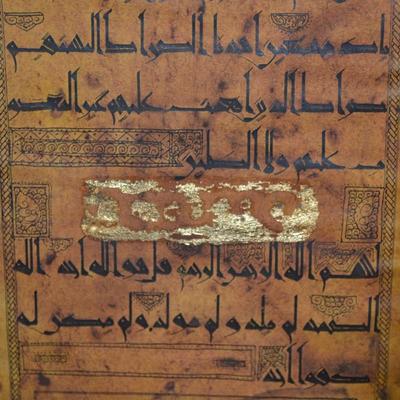 ياك نستعين اهدنا الصراط المستقيم
صراط الذين انعمت عليهم غير المغضو
ب عليهم ولا الضالين
بسم الله الرحمن الرحيم قل هو الله احد الله
الصمد لم يلد ولم يولد ولم يكن له
كفوا احد